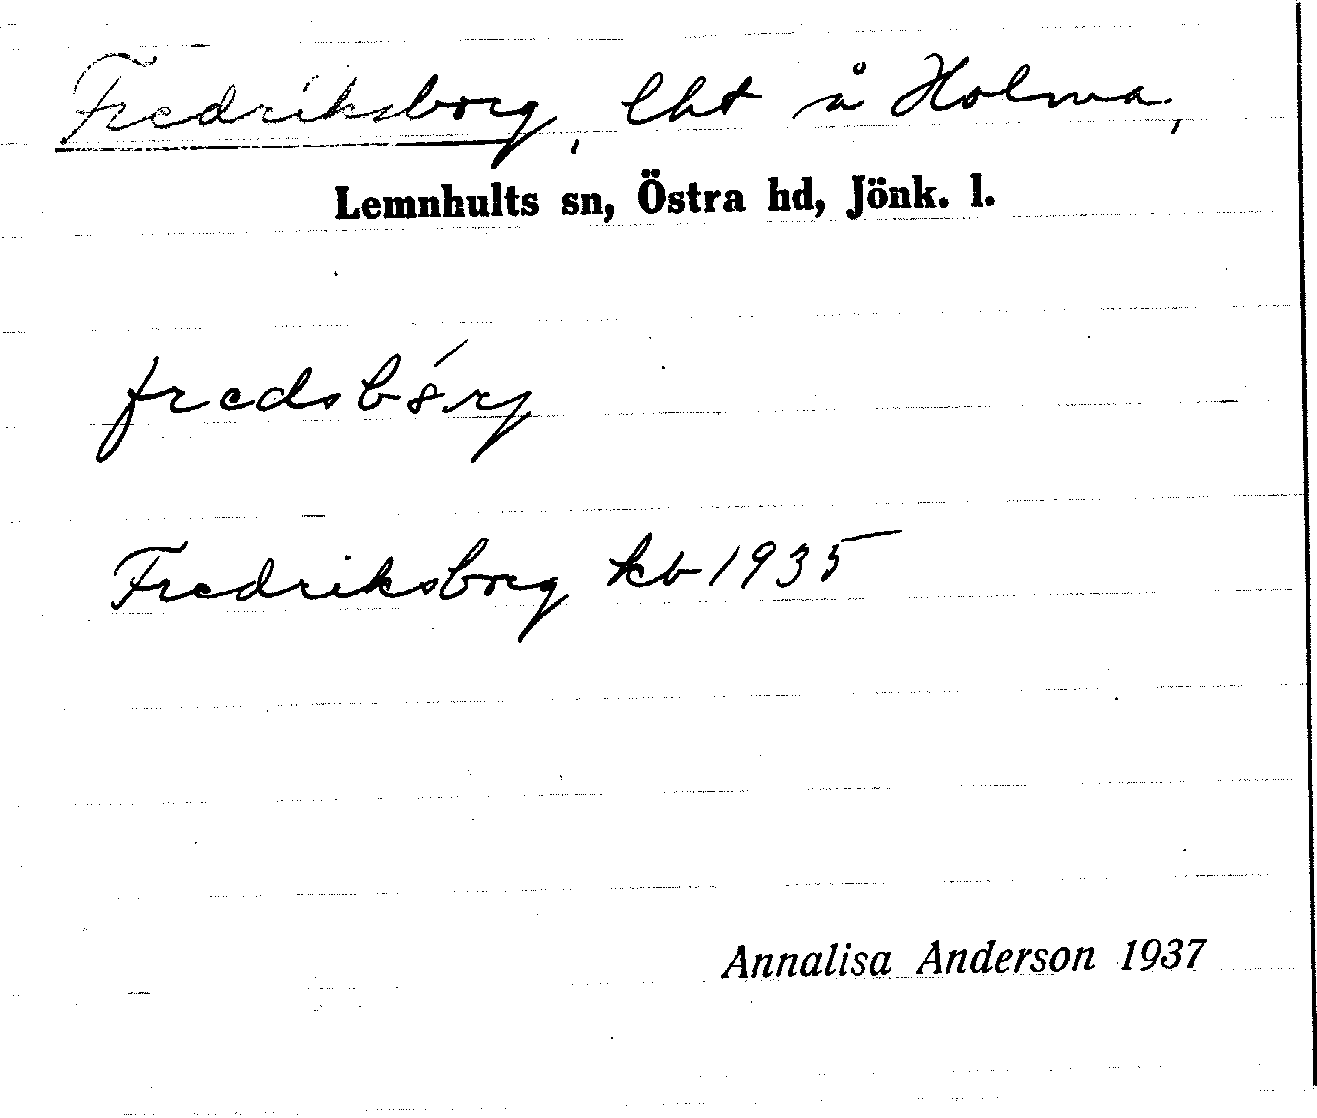 Fredriksborg, lht å Holma,
Lemnhults sn, Östra hd, Jönk. l.
fredsbórj
Fredriksborg kb 1935
Annalisa Anderson 1937